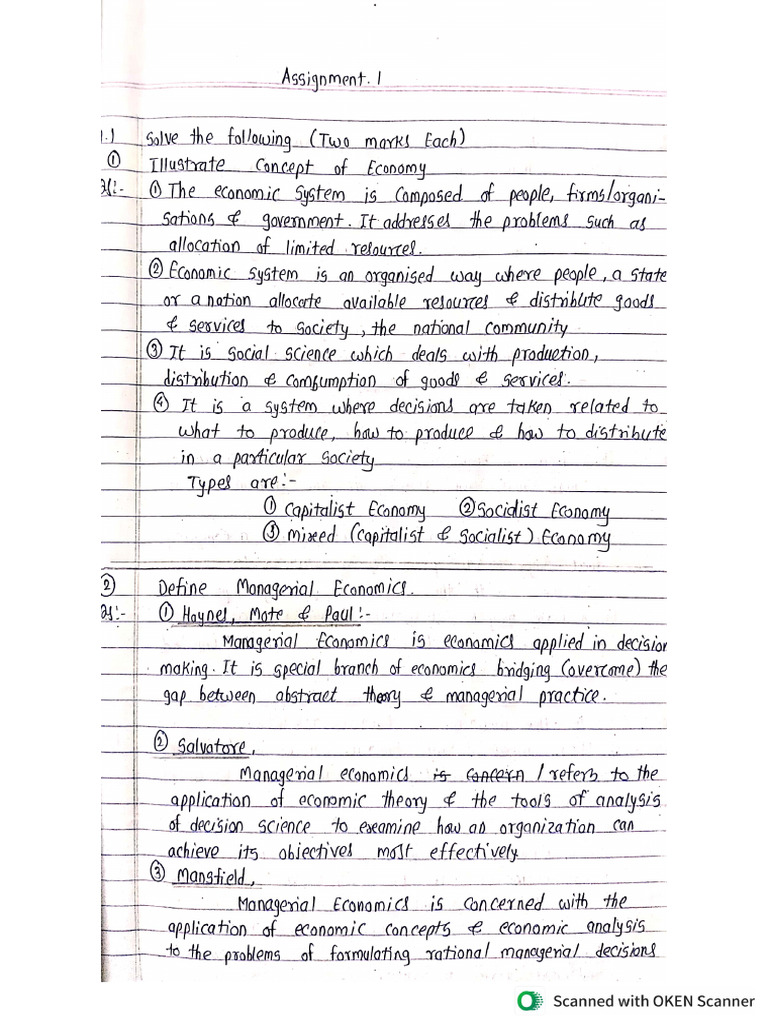 Assignment. 1
1.) Solve the following (Two marks Each)
① Illustrate Concept of Economy
① The economic system is composed of people, firms/organi-
sations & government. It addresses the problems such as
allocation of limited resources.
② Economic system is an organised way where people, a state
or a nation allocate available resources & distribute goods
& services to society, the national community
③ It is social science which deals with production,
distribution & comsumption of goods & services.
④ It is a system where decisions are taken related to
what to produce, how to produce & how to distribute
in a particular society
Types are:-
① Capitalist Economy ② Socialist Economy
③ mixed (Capitalist & Socialist) Economy
② Define Managerial Economics.
① Haynes, Mote & Paul:-
Managerial Economics is economics applied in decision
making. It is special branch of economics bridging (overcome) the
gap between abstract theory & managerial practice.
② Salvatore,
Managerial economics is concern / refers to the
application of economic theory & the tools of analysis
of decision science to examine how an organization can
achieve its objectives most effectively
③ Mansfield,
Managerial Economics is concerned with the
application of economic concepts & economic analysis
to the problems of formulating rational managerial decisions
Scanned with OKEN Scanner